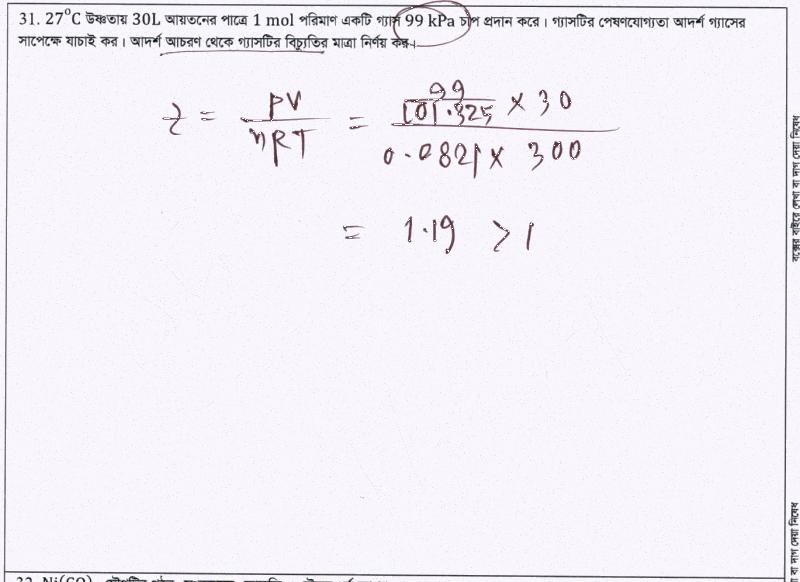 31. 27°C উষ্ণতায় 30L আয়তনের পাত্রে 1 mol পরিমাণ একটি গ্যাস 99 kPa চাপ প্রদান করে। গ্যাসটির পেষণযোগ্যতা আদর্শ গ্যাসের
সাপেক্ষে যাচাই কর। আদর্শ আচরণ থেকে গ্যাসটির বিচ্যুতির মাত্রা নির্ণয় কর।
z = PV / nRT = (99 / 101.325 × 30) / (0.0821 × 300)
= 1.19 > 1
বক্সের বাইরে লেখা বা দাগ দেয়া নিষেধ
বা দাগ দেয়া নিষেধ